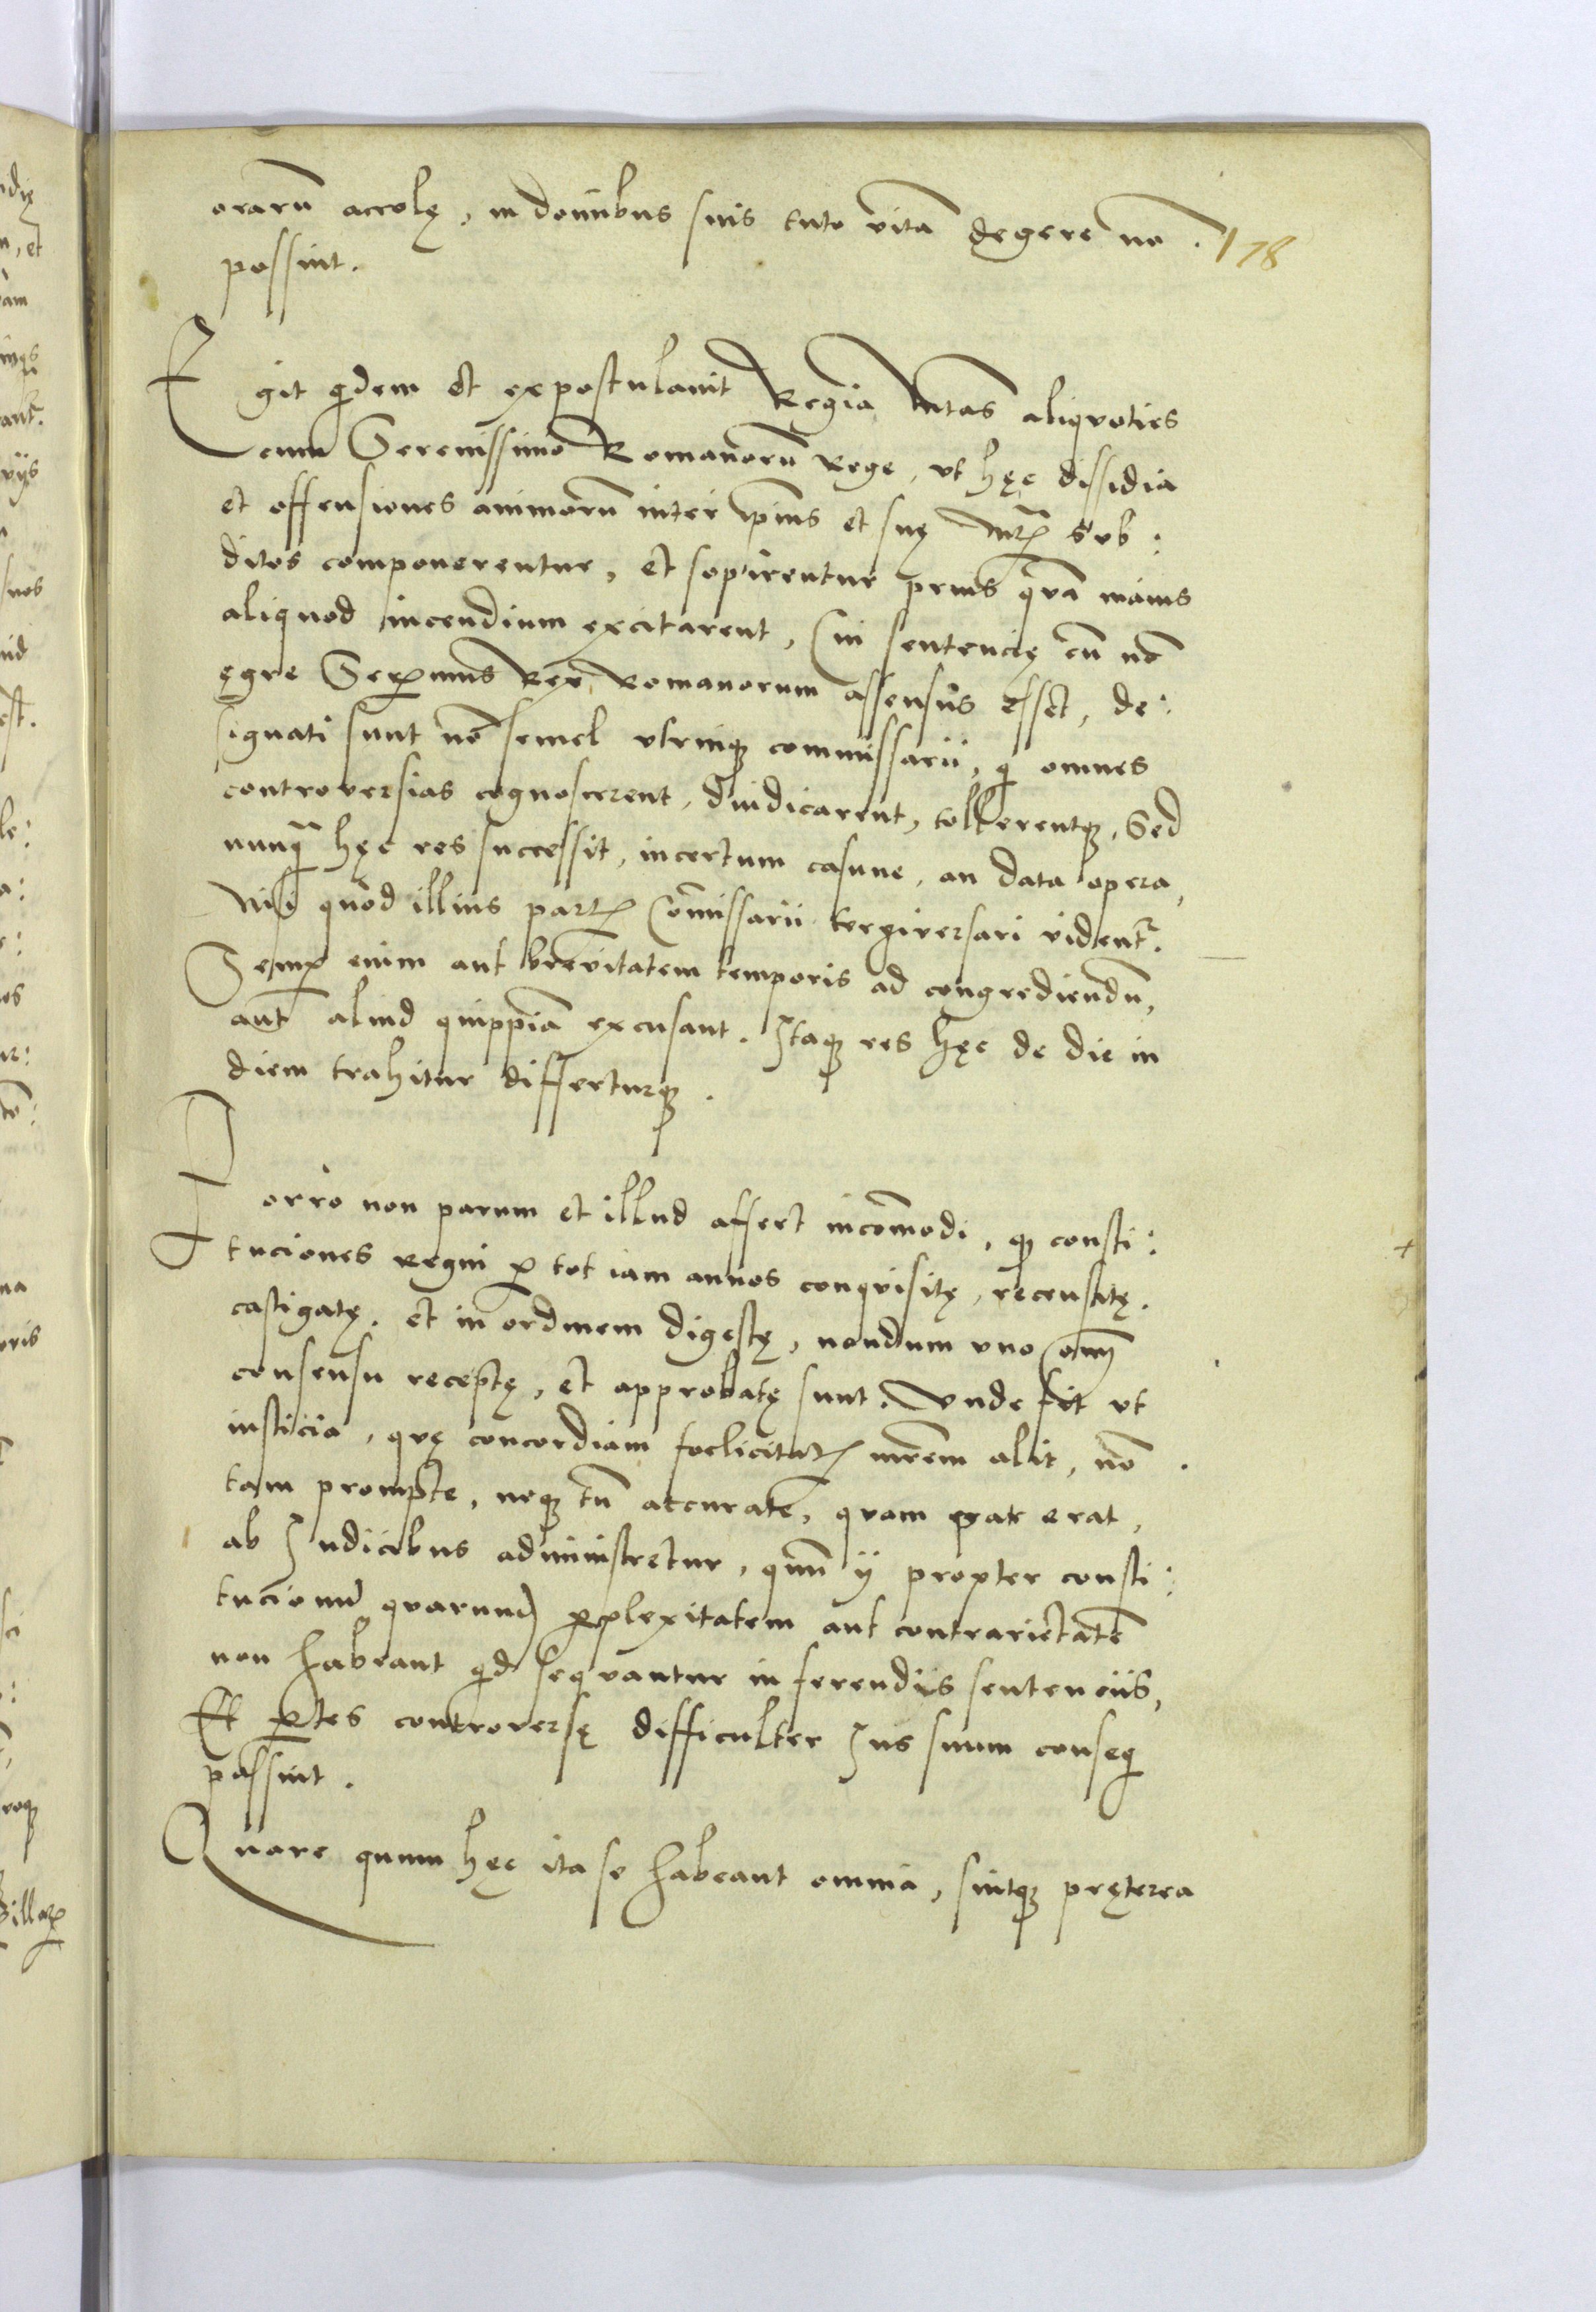 orarũ accolę, in domibus suis tuto vitã degere nõ
178
possint.
Egit qdem et expostulavit Regia Mtas aliqvoties
cum Serenissimo Romanorũ Rege, vt hęc dissidia
et offensiones animorũ inter ipius et suę Mtis sub:
ditos componerentur, et sopirentur prius qvã maius
aliquod incendium excitarent, Cui sentencię cũ nõ
ęgre Serenimus Rex Romanorum assensus esset, de:
signati sunt nõ semel vtrinqȝ commissarii, qi omnes
controversias cognoscerent, diiudicarent, tollerentqȝ, Sed
nunqã hęc res successit, incertum casune, an data opera,
Nisi quod illius partis Cõmissarii tergiversari videntr.
Semper enim aut brevitatem temporis ad congrediendũ,
aut aliud quippiã excusant. Itaqȝ res hęc de die in
diem trahitur differturqȝ.
Porro non parum et illud affert incõmodi, qȝ consti:
tuciones Regni p tot iam annos conqvisitę, recensitę.
castigatę. et in ordinem digestę, nondum uno omĩ
consensu receptę, et approbatę sunt. Unde fit vt
iusticia, qvę concordiam foelicitatis mrem alit, nõ
tam prompte, neqȝ tũ accurate, qvam par erat,
ab Iudicibus administretur, quũ ij propter consti:
tucionũ qvarund pplexitatem aut contrarietatẽ
non habeant qid seqvantur in ferendis sentenciis,
Et ptes controversę difficulter Ius suum conseqi
possint.
Quare quum hęc ita se habeant omnia, sintqȝ pręterea